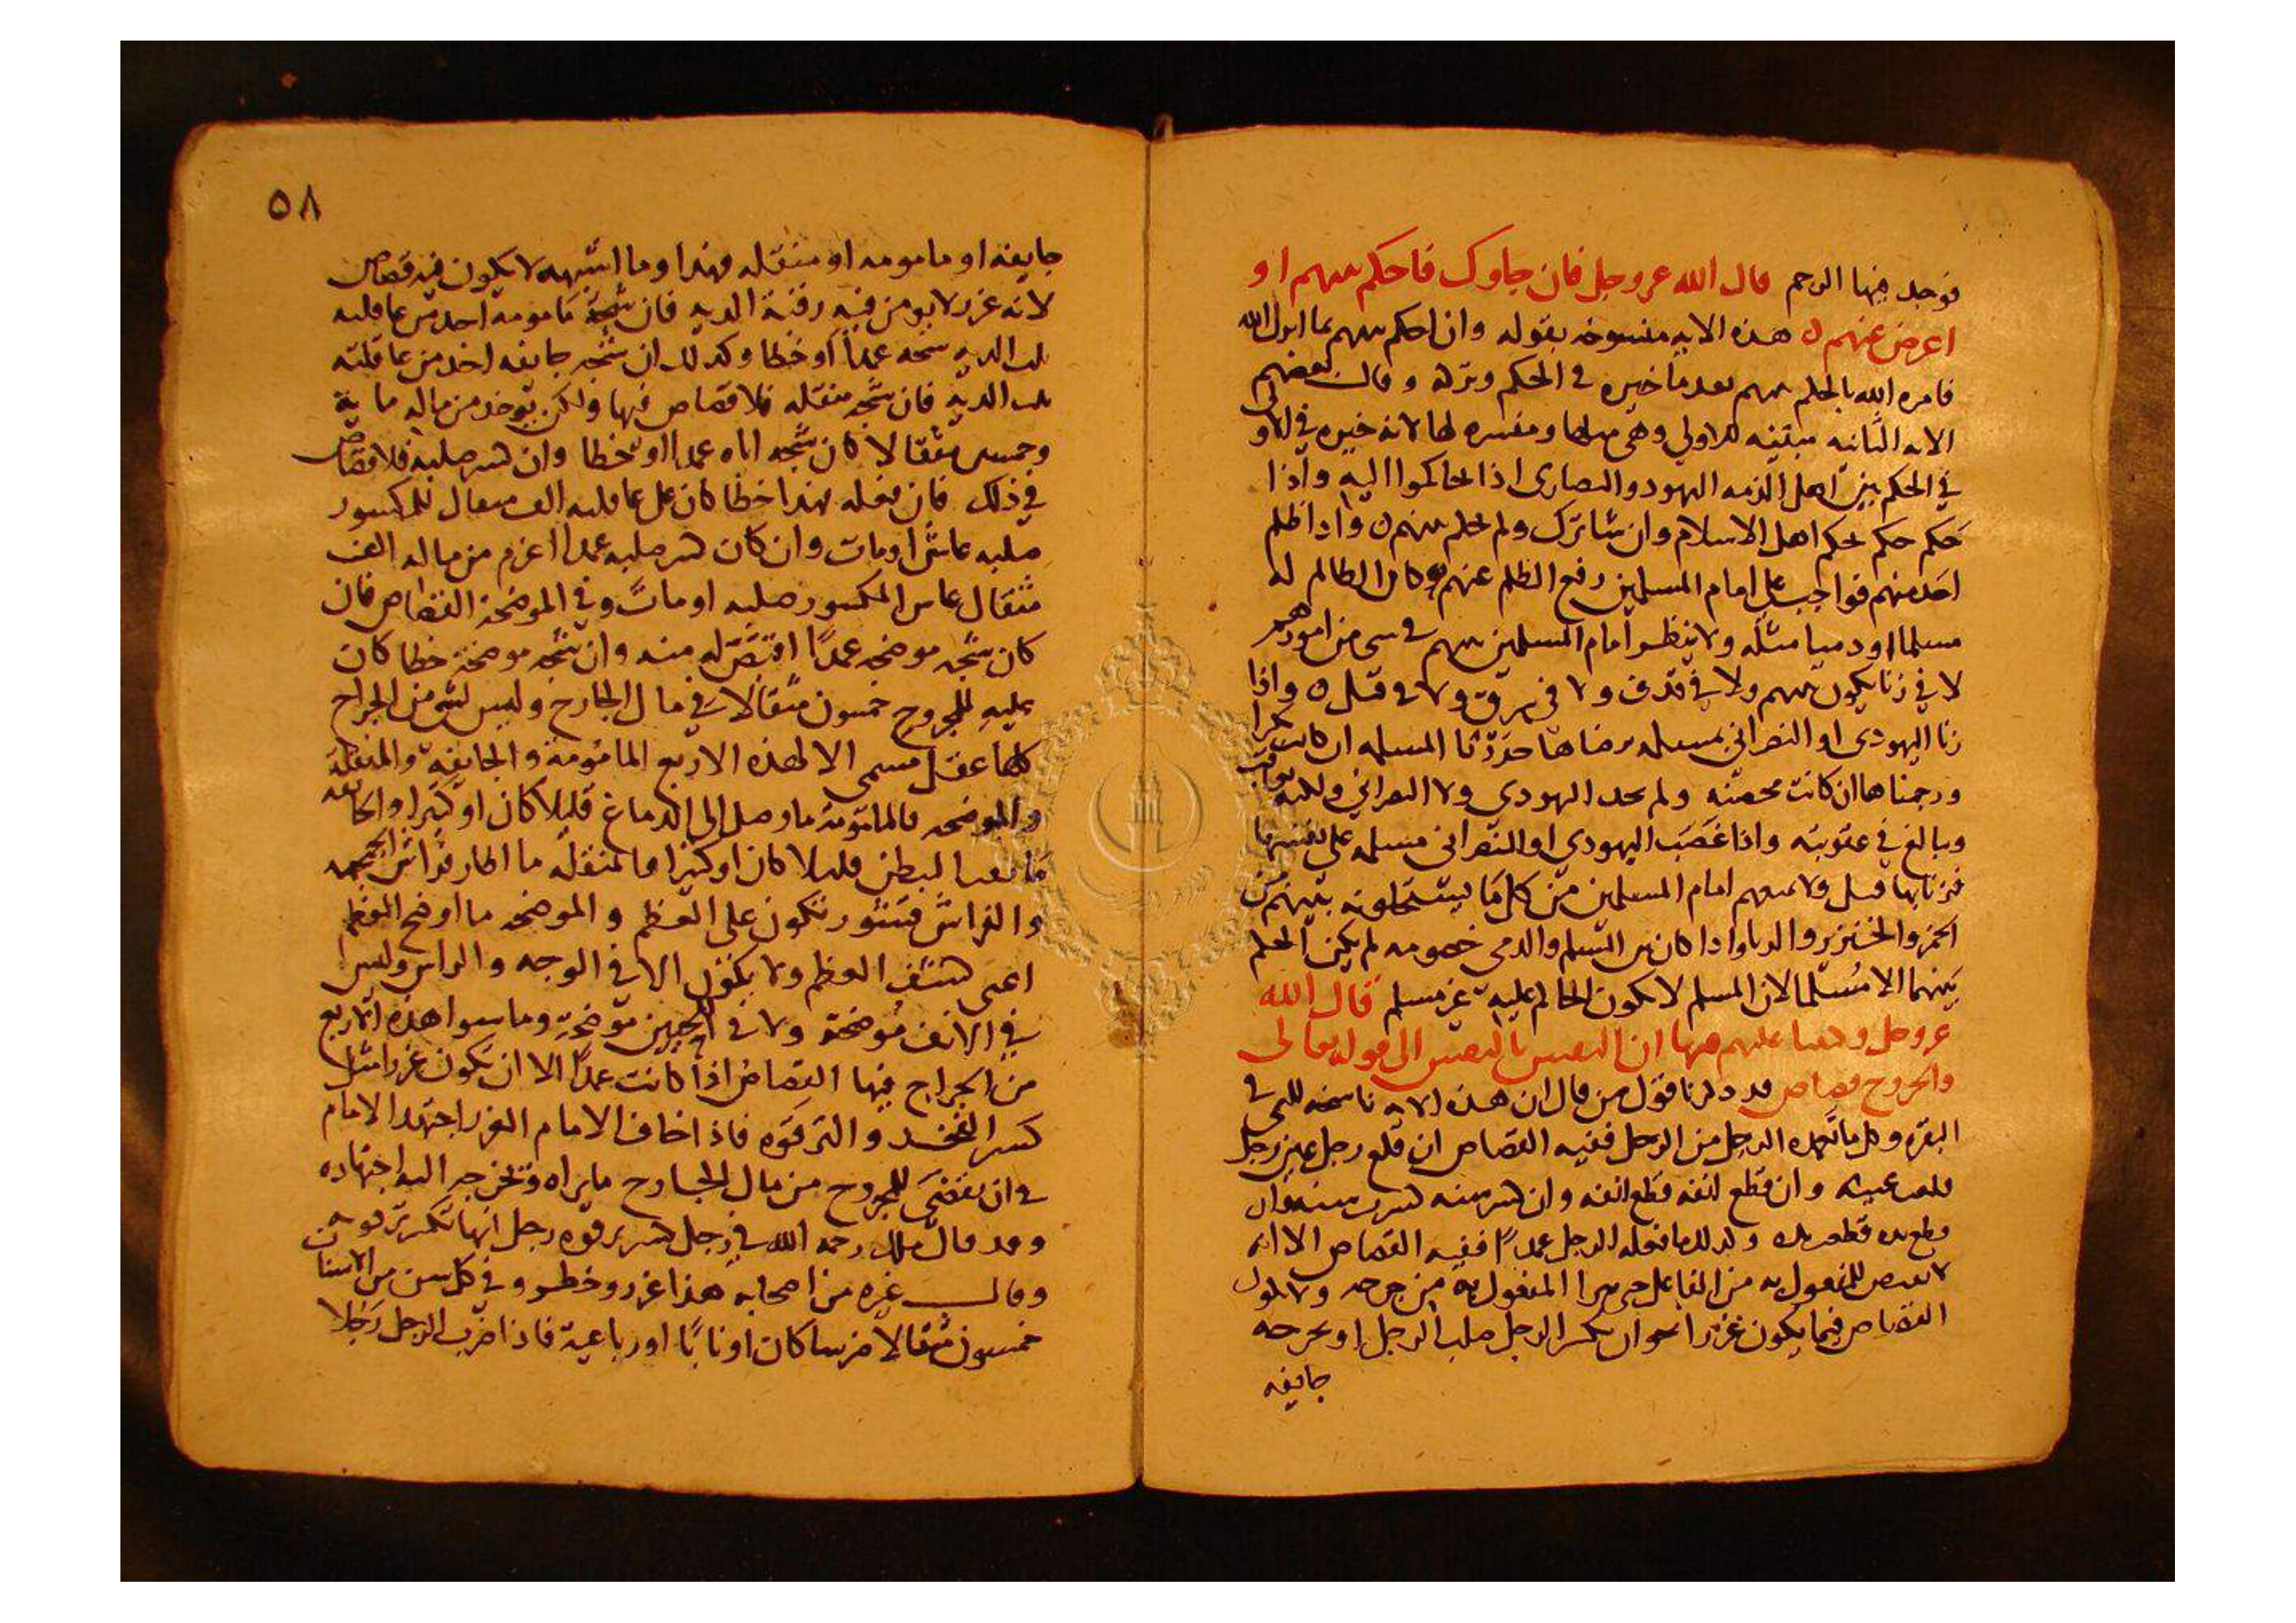 فوجد فيها الرجم قال الله عز وجل فان جاوك فاحكم بينهم او
اعرض عنهم ه هذه الايه منسوخه بقوله وان احكم بينهم بما انزل الله
فامره الله بالحكم بينهم بعد ما خيره في الحكم وتركه وقال بعضهم
الايه الثانيه مبينه للاولى وهي مثلها ومفسره لها لانه خيره في الاولى
في الحكم بين اهل الذمه اليهود والنصارى اذا تحاكموا اليه واذا
حكم حكم بحكم اهل الاسلام وان شا ترك ولم يحكم بينهم ه واذا ظلم
احد منهم فواجب على امام المسلمين رفع الظلم عنهم وكان الظالم له
مسلما او ذميا مثله ولا ينظر امام المسلمين بينهم في شي من امورهم
لا في زنا يكون بينهم ولا في قذف ولا في سرق ولا في قتل ه واذا
زنا اليهودي او النصراني بمسلمه برضاها حددنا المسلمه ان كانت بكرا
ورجمناها ان كانت محصنه ولم يحد اليهودي ولا النصراني ولكنه يعاقب
ويبالغ في عقوبته واذا غصب اليهودي او النصراني مسلمه على نفسها
فزنا بها قتل ولا يمنعهم امام المسلمين من كل ما يستحلونه بينهم من
الخمر والخنزير والربا واذا كان بين المسلم والذمي خصومه لم يكن الحكم
بينهما الا مسلما لان المسلم لا يكون الحاكم عليه غير مسلم قال الله
عز وجل وكتبنا عليهم فيها ان النفس بالنفس الى قوله تعالى
والجروح قصاص قد ذكرنا قول من قال ان هذه الايه ناسخه للتي في
البقره وكل ما تعمده الرجل من الرجل ففيه القصاص ان قلع رجل عين رجل
قلعت عينه وان قطع انفه قطع انفه وان كسر سنه كسرت سنه وان
قطع يده قطعت يده وكذلك ما فعله الرجل عمدا ففيه القصاص الا انه
لا يقتص للمفعول به من الفاعل حتى يبرا المفعول به من جرحه ولا يكون
القصاص فيما يكون غررا نحو ان يكسر الرجل صلب الرجل او يجرحه
جايفه
٥٨
جايفه او مامومه او منقله فهذا وما اشبهه لا يكون فيه قصاص
لانه غرر لا يومن فيه وفيه الديه فان شجه مامومه اخذ من عاقلته
ثلث الديه شجه عمدا او خطا وكذلك ان شجه جايفه اخذ من عاقلته
ثلث الديه فان شجه منقله فلا قصاص فيها ولكن يوخذ من ماله ماية
وخمسين مثقالا كان شجه اياه عمدا او خطا وان كسر صلبه فلا قصاص
في ذلك فان فعله بهذا خطا كان على عاقلته الف مثقال للمكسور
صلبه عاش او مات وان كان كسر صلبه عمدا اغرم من ماله الف
مثقال عاش المكسور صلبه او مات وفي الموضحة القصاص فان
كان شجه موضحه عمدا اقتص له منه وان شجه موضحة خطا كان
عليه للمجروح خمسون مثقالا في مال الجارح وليس لشي من الجراح
كلها عقل مسمى الا لهذه الاربع المامومة والجايفه والمنقلة
والموضحه فالمامومة ما وصل الى الدماغ قليلا كان او كثيرا والجايفه
ما نفد البطن قليلا كان او كثيرا والمنقله ما اطار فراش الجمجمه
والفراش قشور تكون على العظم والموضحه ما اوضح العظم
اعنى كشف العظم ولا يكون الا في الوجه والراس وليس
في الانف موضحة ولا في اللحيين موضحه وما سوا هذه الاربع
من الجراح فيها القصاص اذا كانت عمدا الا ان يكون غررا مثل
كسر الفخذ والترقوه فاذا خاف الامام الغرر اجتهد الامام
في ان يقضى للمجروح من مال الجارح ما يراه ويخرجه اليه اجتهاده
وقد قال ملك رحمه الله في رجل كسر ترقوه رجل انها تكسر ترقوته
وقال غيره من اصحابه هذا غرر وخطر وفي كل سن من الاسنان
خمسون مثقالا ضرسا كان او نابا او رباعية فاذا ضرب الرجل رجلا